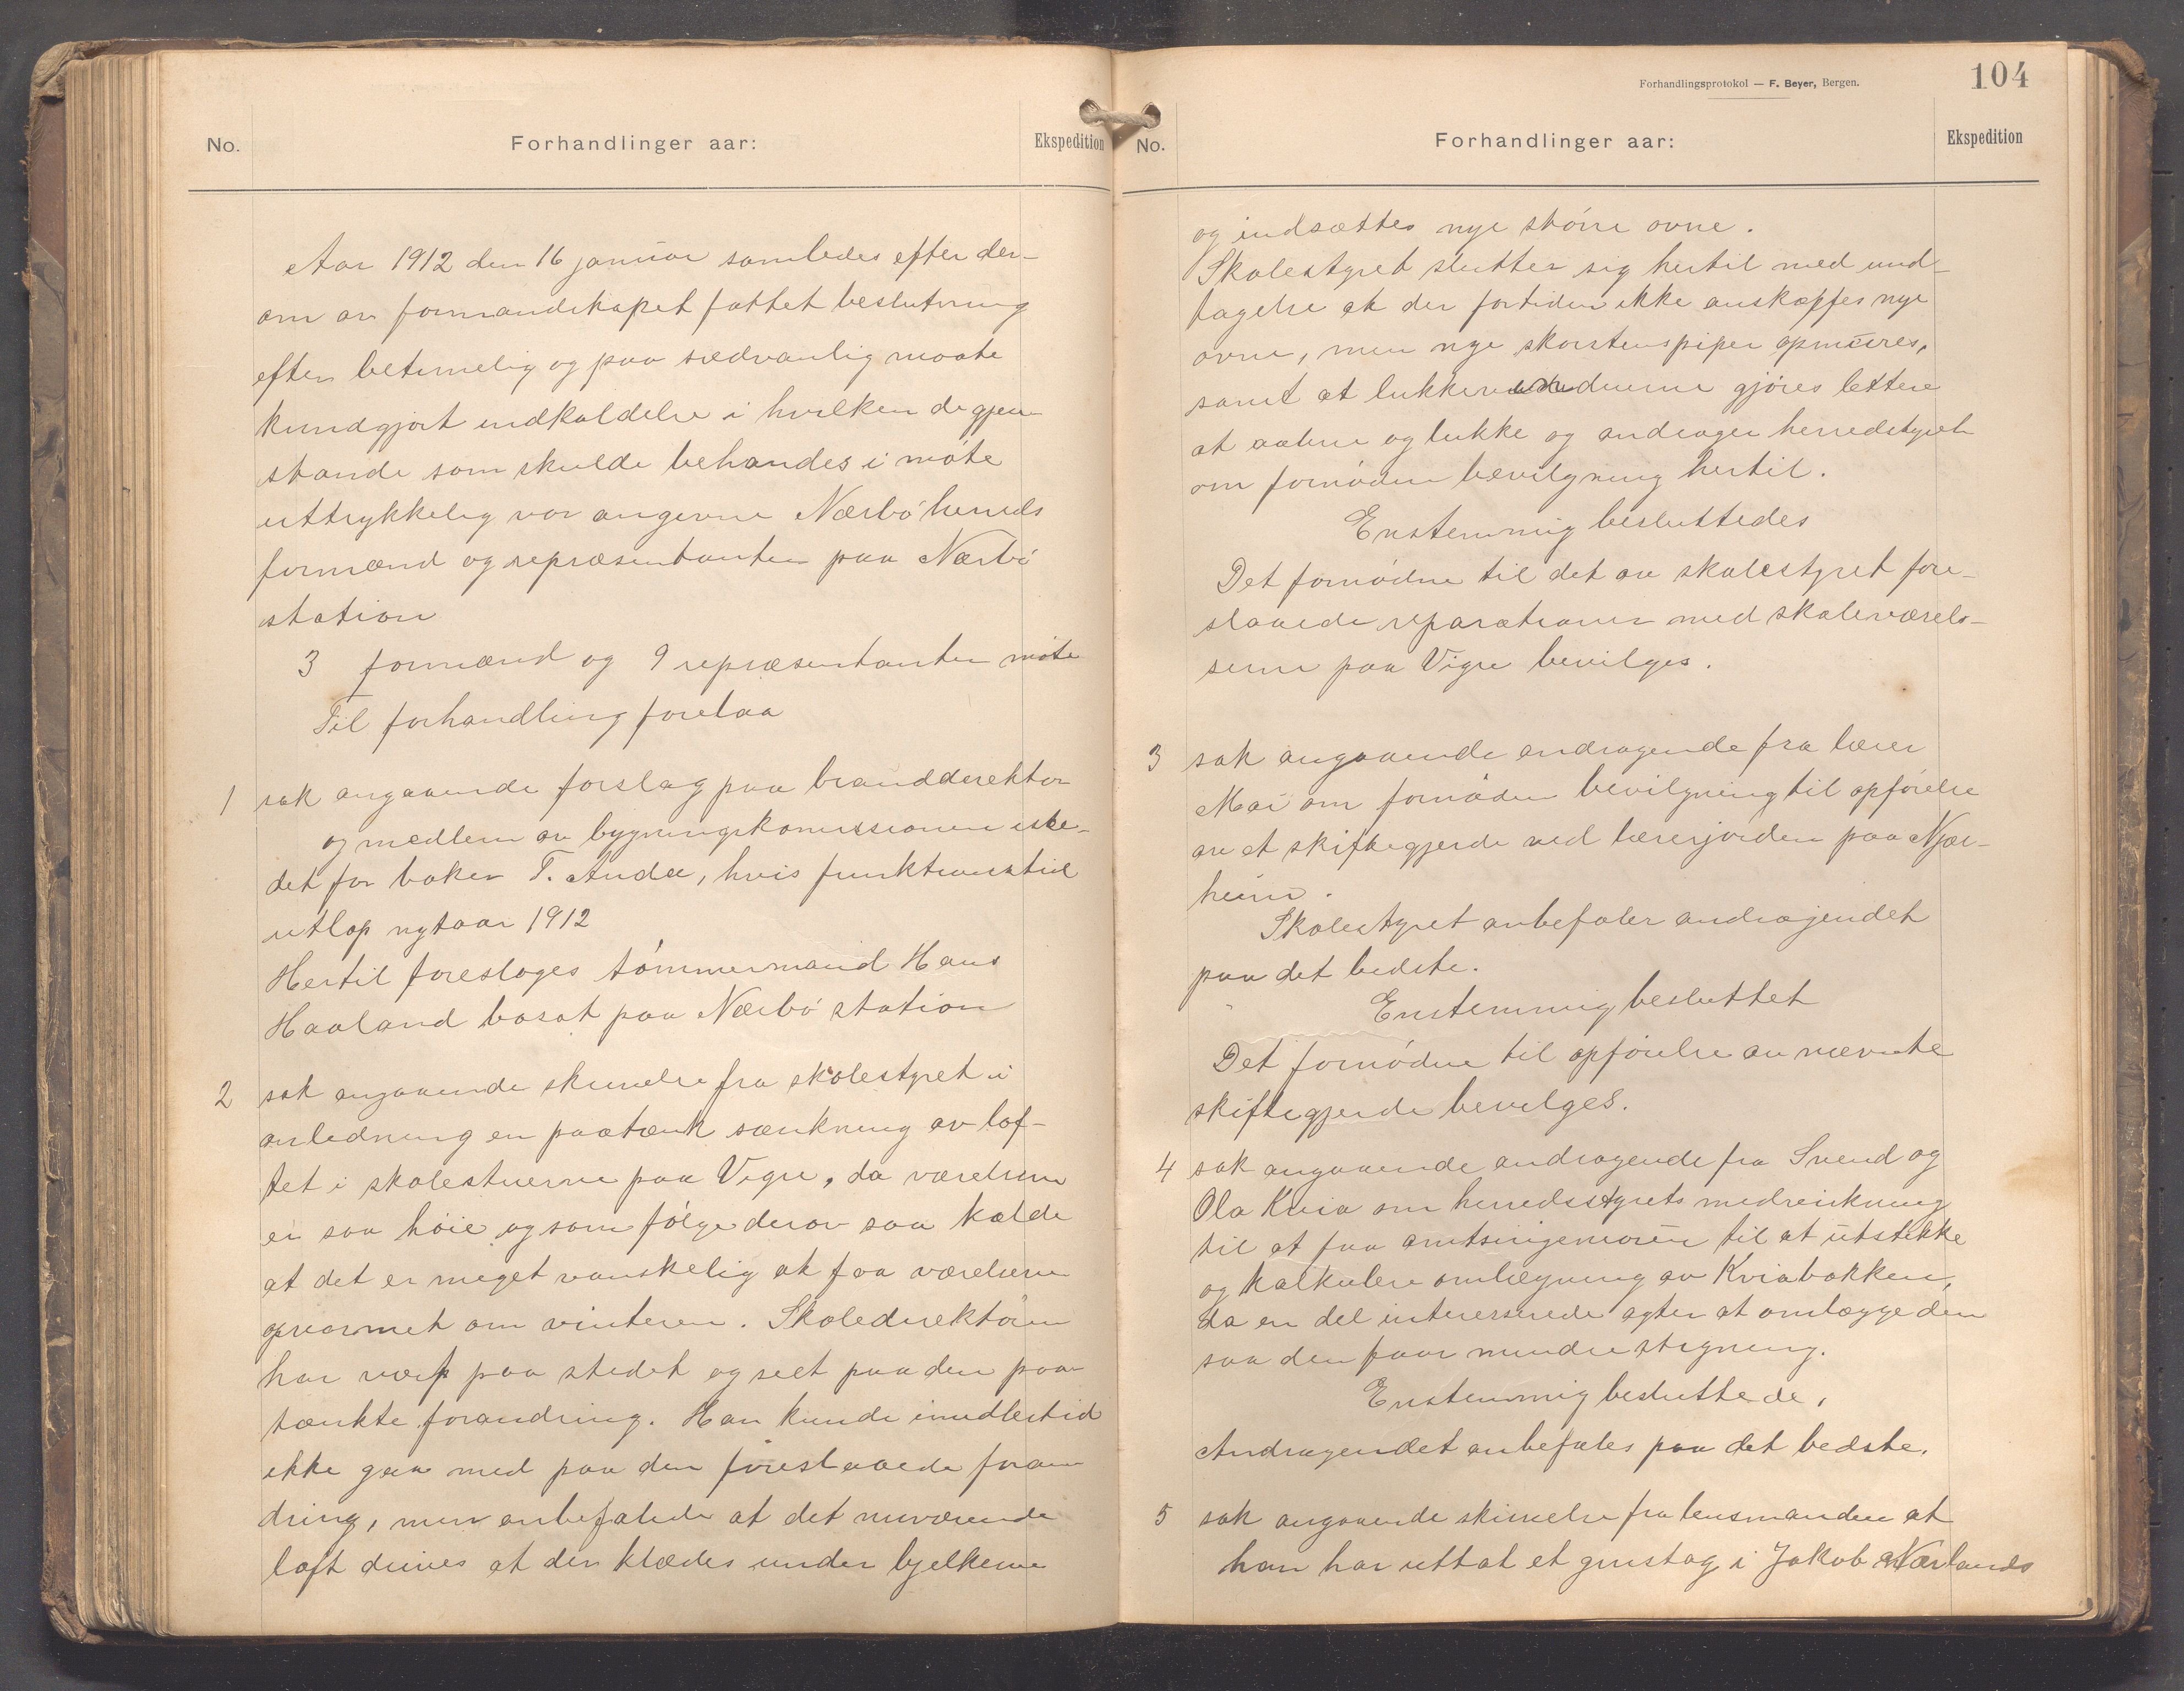 No.
Forhandlinger aar:
Ekspedition
Aar 1912 den 16 januar samledes efter der-
om av formandskapet fattet beslutning
efter betimelig og paa sedvanlig maate
kundgjort indkaldelse i hvilken de gjen-
stande som skulde behandes i møte
uttrykkelig var angivne Nærbø herreds
formænd og repræsentanter paa Nærbø
station
3 formænd og 9 repræsentanter møte
Til forhandling forelaa
1 sak angaaende forslag paa branddirektør
og medlem av bygningskomissionen iste-
det for baker T. Anda, hvis funktionstid
utløp nytaar 1912
Hertil foresloges tømmermand Hans
Haaland bosat paa Nærbø station
2 sak angaaende skrivelse fra skolestyret i
anledning en paatænk sænkning av lof-
tet i skolestuerne paa Vigre, da værelsene
er saa høie og som følge derav saa kolde
at det er meget vanskelig at faa værelsene
opvarmet om vinteren. Skoledirektøren
har vært paa stedet og seet paa den paa-
tænkte forandring. Han kunde imidlertid
ikke gaa med paa den foreslaaede foran
dring, men anbefalede at det nuværende
loft drives at der klædes under bjelkerne
Forhandlingsprotokol — F. Beyer, Bergen.
104
No.
Forhandlinger aar:
Ekspedition
og indsættes nye større ovne.
Skolestyret slutter sig hertil med und-
tagelse at der fortiden ikke anskaffes nye
ovne, men nye skorstenspiper opmures,
samt at lukkevinduerne gjøres lettere
at aabne og lukke og andrager herredstyret
om fornøden bevilgning hertil.
Enstemmig besluttedes
Det fornødne til det av skolestyret fore-
slaaede reparationer med skoleværels-
serne paa Vigre bevilges.
3 sak angaaende andragende fra lærer
Moi om fornøden bevilgning til opførelse
av et skiftegjerde ved lærerjorden paa Njær-
heim.
Skolestyret anbefaler andragendet
paa det bedste.
Enstemmig besluttet
Det fornødne til opførelse av nævnte
skiftegjerde bevilges.
4 sak angaaende andragende fra Svend og
Ola Kvia om herredsstyrets medvirkning
til at faa amtsingeniøren til at utstikke
og kalkulere omlægning av Kviabakken,
da en del interesserede agter at omlægge den
saa den faar mindre stigning.
Enstemmig besluttede,
Andragendet anbefales paa det bedste.
5 sak angaaende skrivelse fra lensmanden at
han har uttat et grustag i Jakob Nærlands